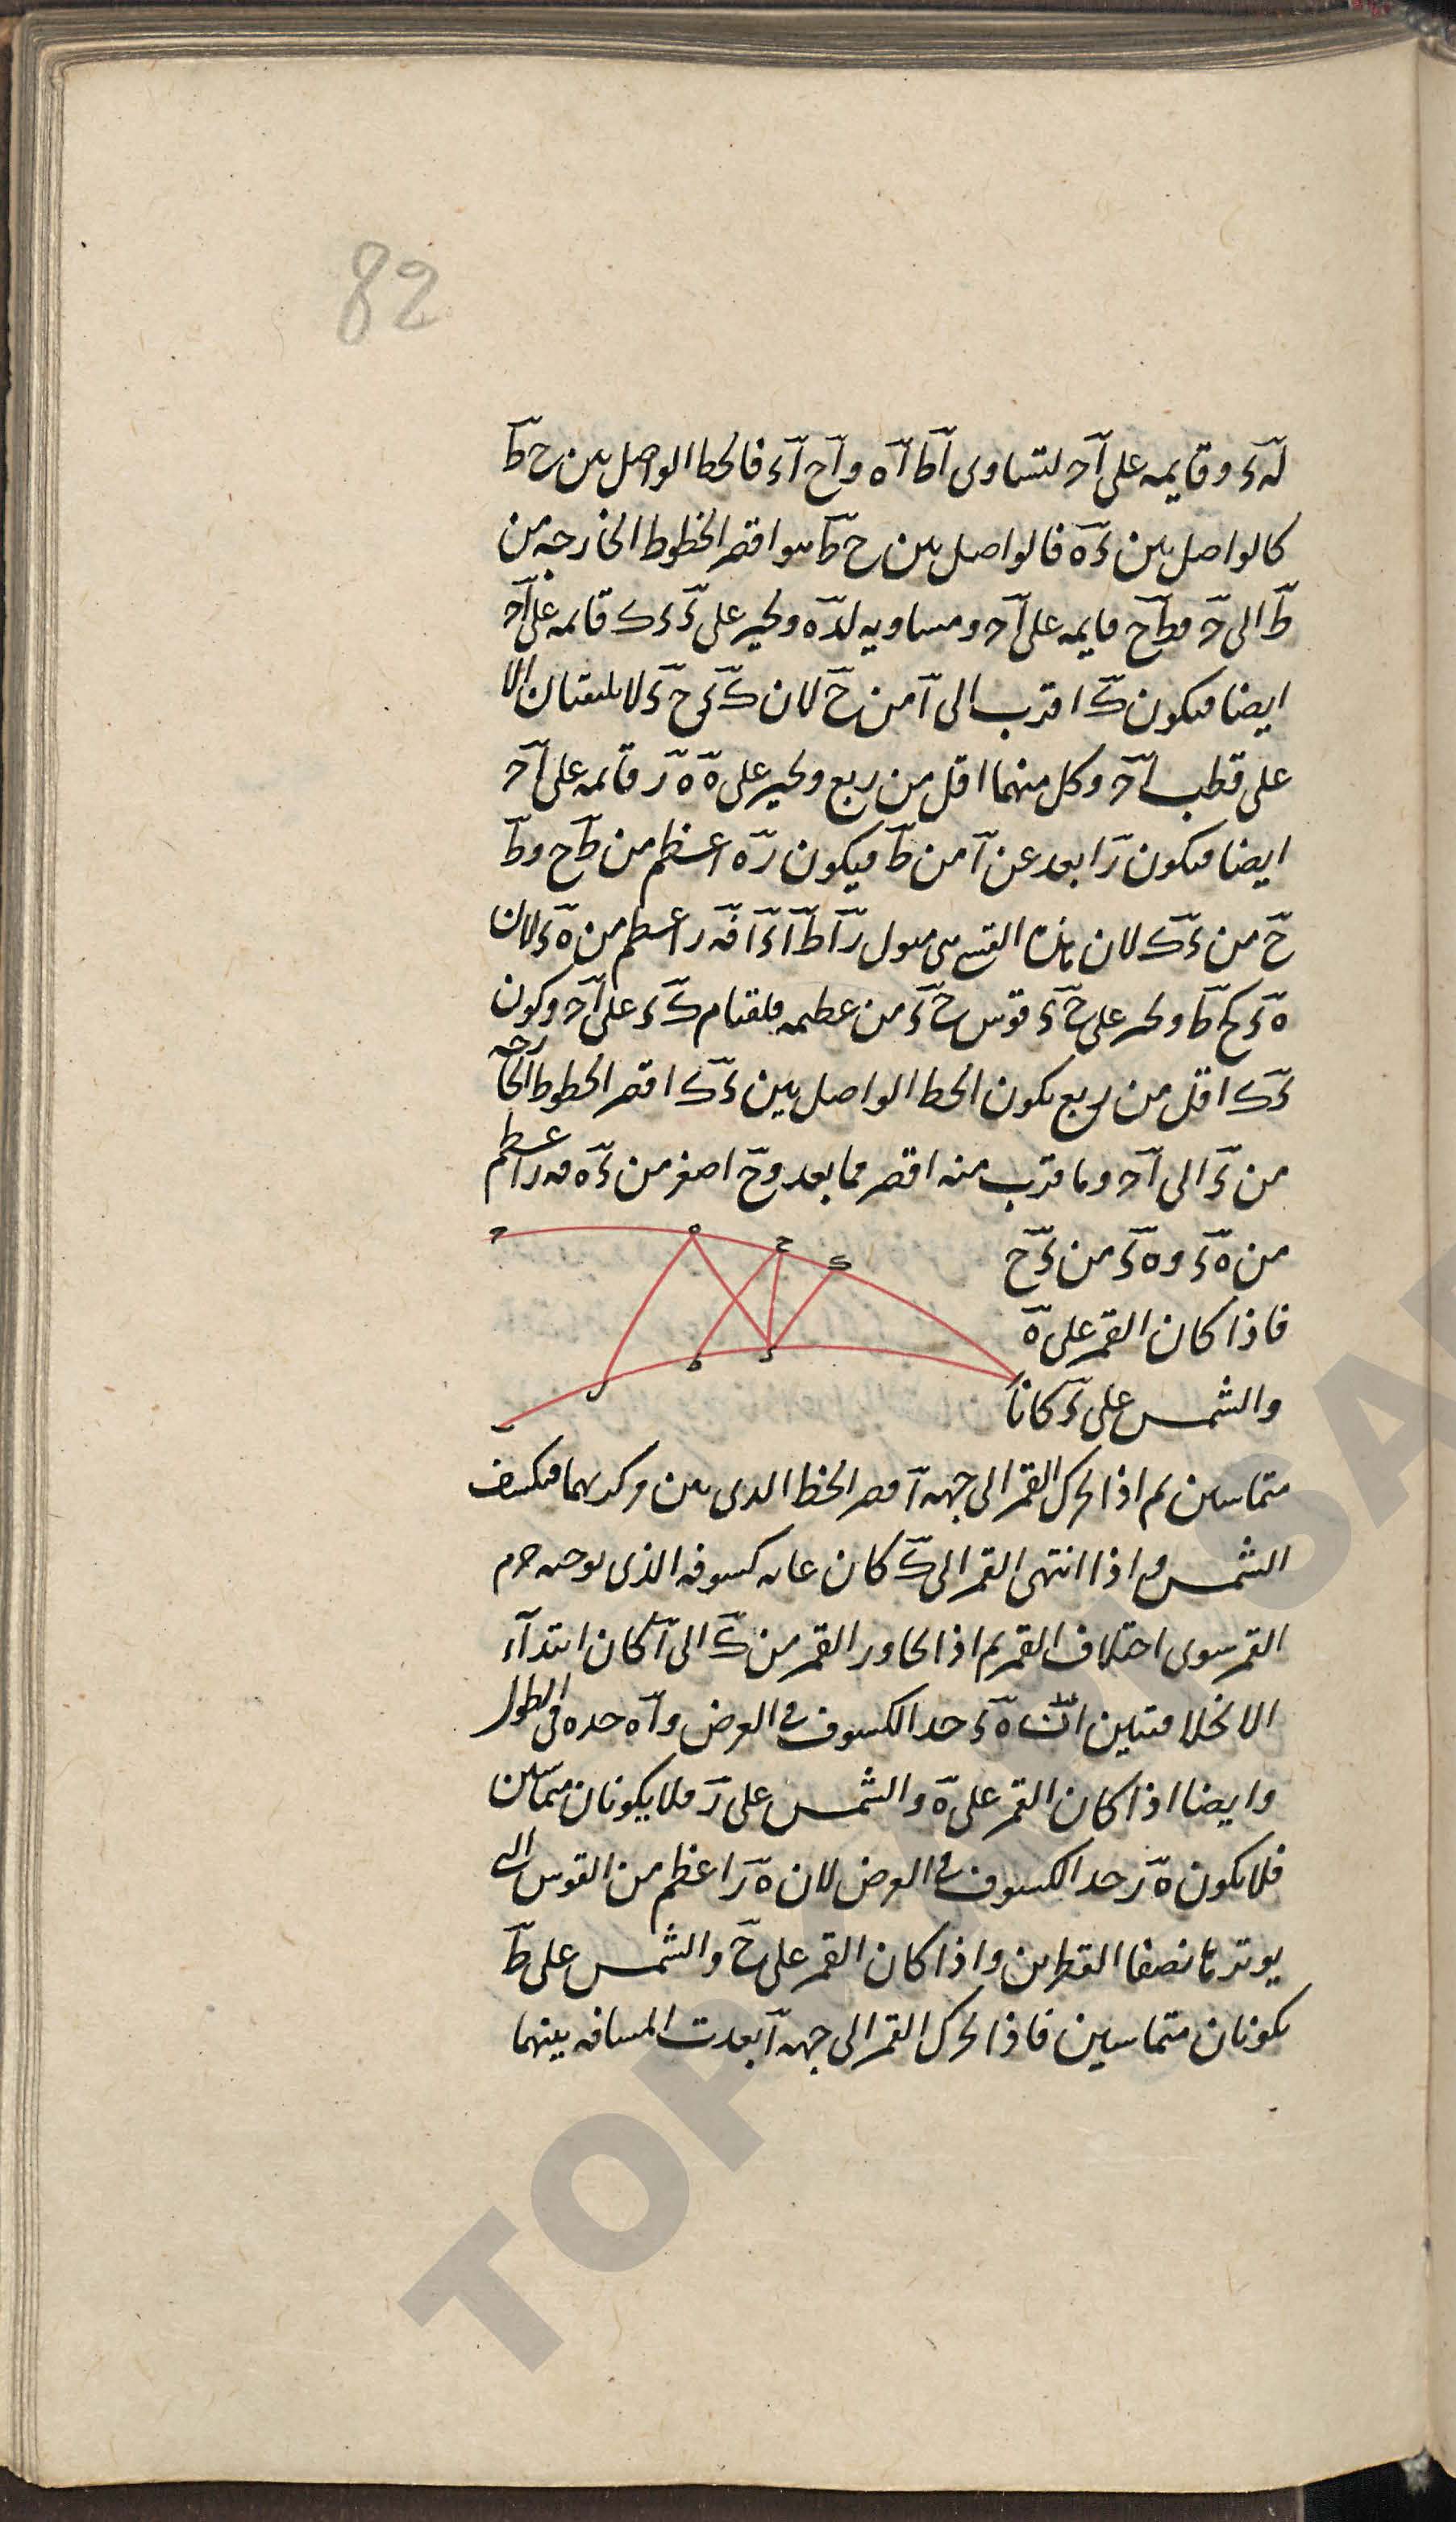 82
لدء وقايمه على اح لتساوى اط اه واح اء فالخط الواصل بين ح ط
كالواصل بين ء ه فالواصل بين ح ط هو اقصر الخطوط الخارجه من
ط الى اح فطح قايمه على اح ومساويه لده ونخير على ء ءك قايمه على اح
ايضا فيكون ك اقرب الى ا من ح لان ك ء ح ء لا يلتقيان الا
على قطب اح وكل منهما اقل من ربع ونخير على ه ه ر قايمه على اح
ايضا فيكون ر ابعد عن ا من ط فيكون ره اعظم من ط ح وط
ح من ءك لان هذه القسى هى ميول را طا ءا فه ر اعظم من ه ء لان
ه ء كح ط ونخير على ح ء قوس ح ء من عظيمه فلقيام ك ء على اح وكون
ءك اقل من ربع يكون الخط الواصل بين ءك اقصر الخطوط الخارجه
من ء الى اح وما قرب منه اقصر مما بعد وح اصغر من ء ه فه ر اعظم
من ه ء وه ء من ء ح
فاذا كان القمر على ه
والشمس على ء كانا
متماسين ثم اذا تحرك القمر الى جهه ا قصر الخط الذى بين مركزيهما فيكسف
الشمس و اذا انتهى القمر الى ك كان غايه كسوفه الذى يوجبه جرم
القمر سوى اختلاف القمر ثم اذا تجاوز القمر من ك الى ا كان ابتدآء
الانجلا فتبين ان ه ء حد الكسوف فى العرض واه حده فى الطول
وايضا اذا كان القمر على ه والشمس على ر فلا يكونان متماسين
فلا يكون ه ر حد الكسوف فى العرض لان ه ر اعظم من القوس التى
يوترها نصفا القطرين واذا كان القمر على ح والشمس على ط
يكونان متماسين فاذا تحرك القمر الى جهه ا بعدت المسافه بينهما
TOP
SA